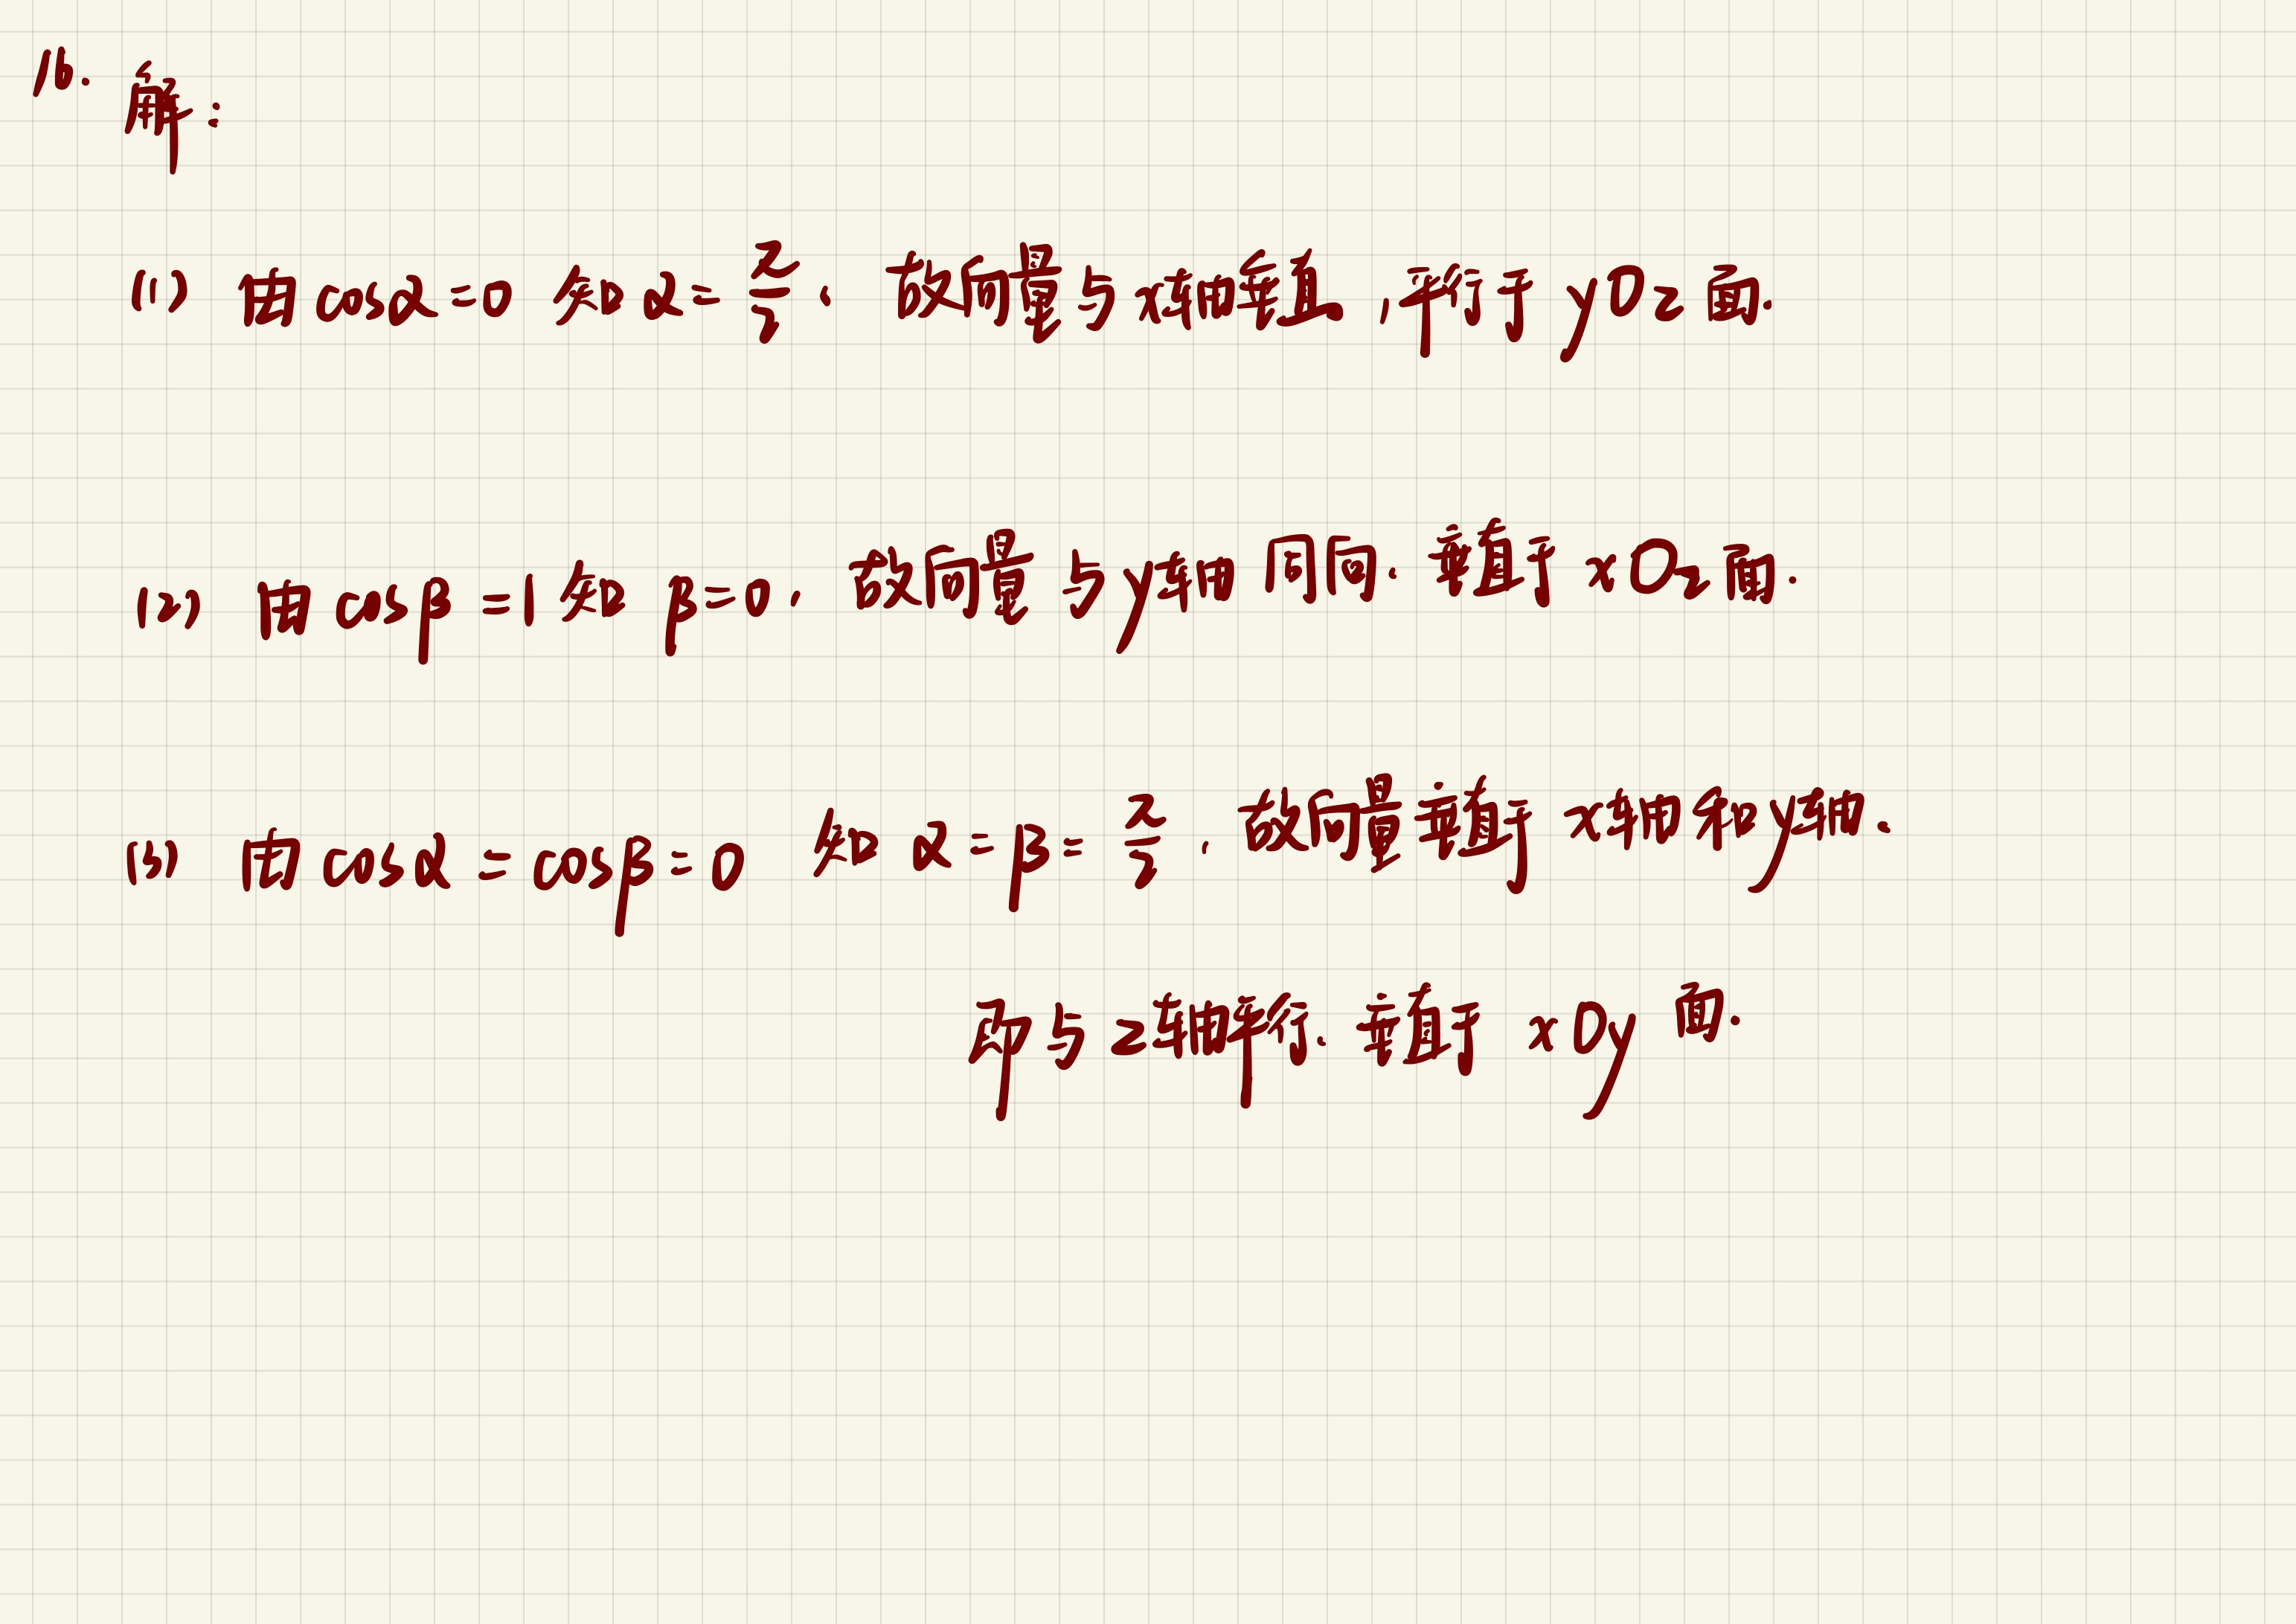 16. 解:
(1) 由 cosα=0 知 α=π/2. 故向量与x轴垂直,平行于 yOz 面.
(2) 由 cosβ=1 知 β=0. 故向量与y轴同向. 垂直于 xOz 面.
(3) 由 cosα=cosβ=0 知 α=β=π/2. 故向量垂直于 x轴和y轴.
即与z轴平行. 垂直于 xOy 面.